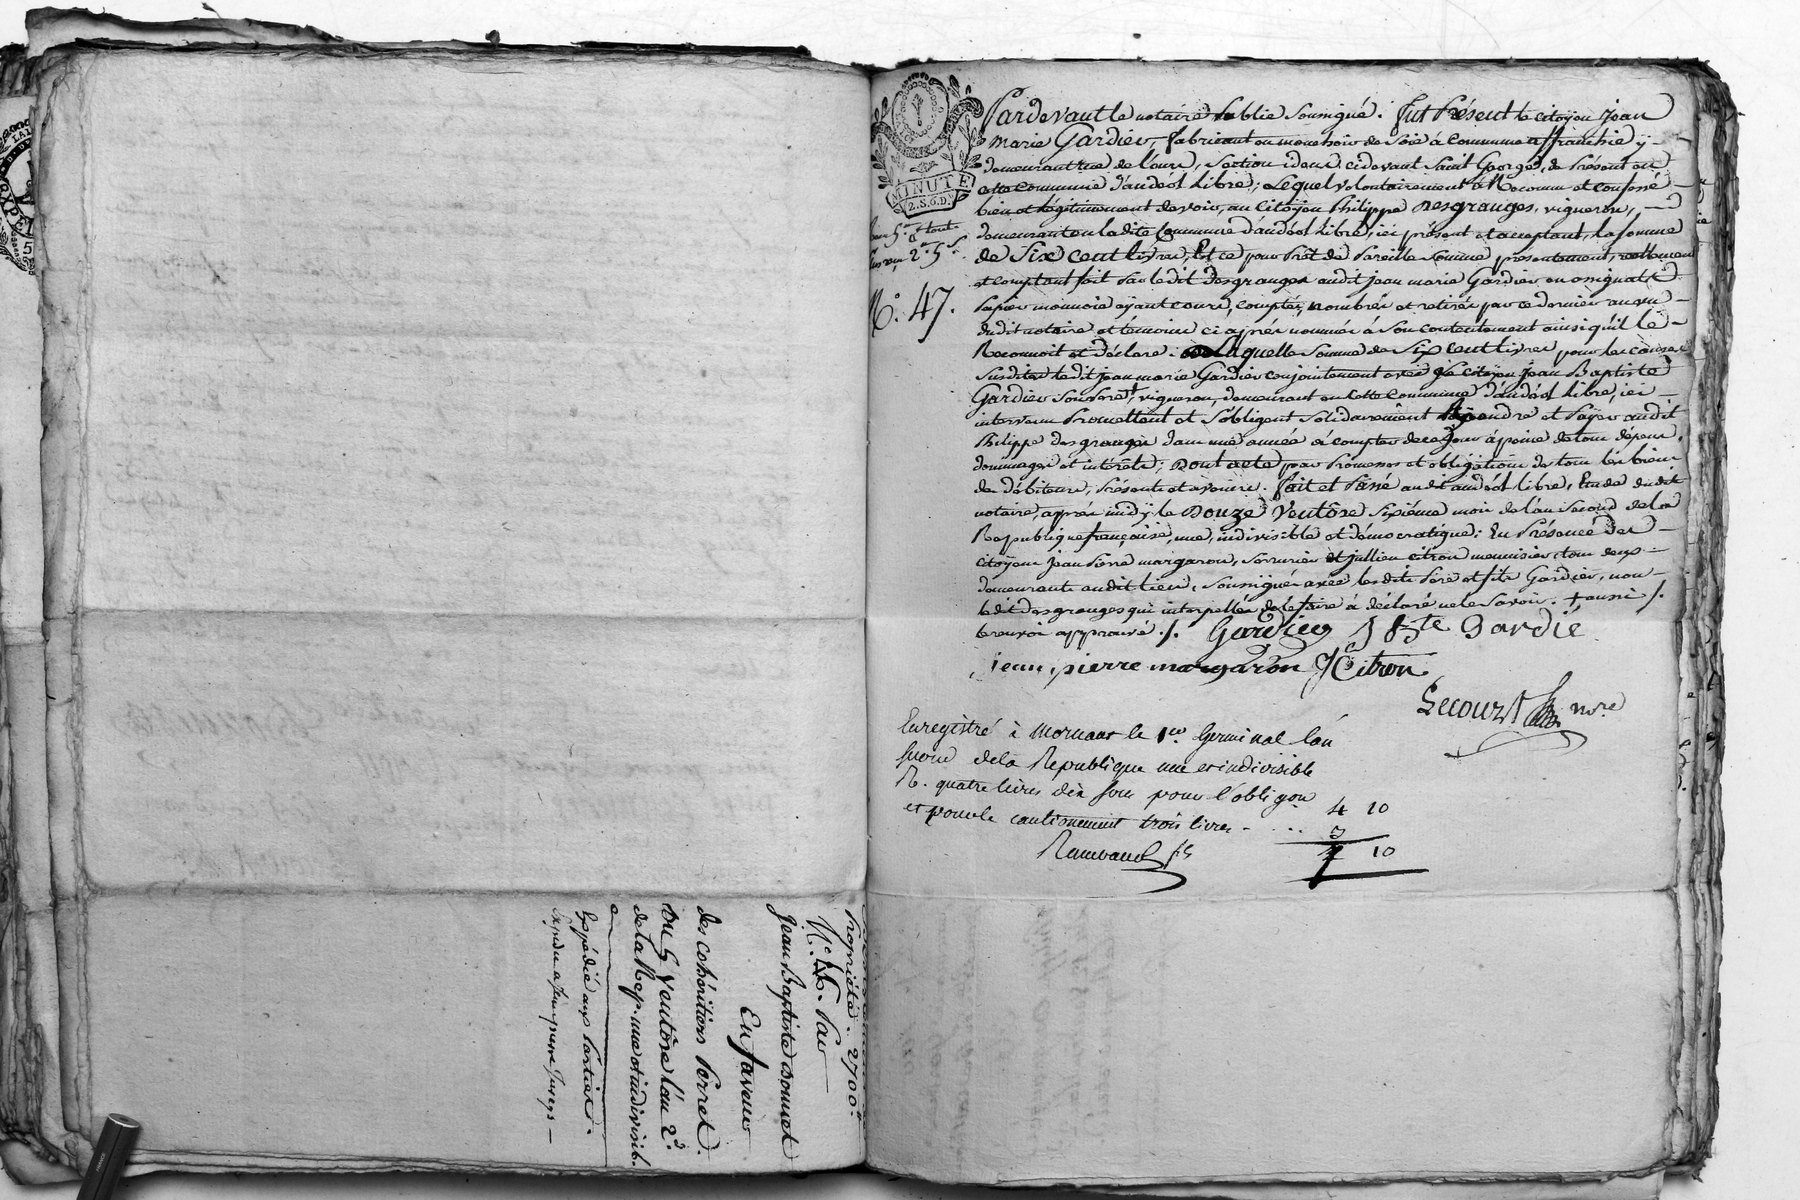 Propriété. 2700.
N.º 46. Par
Jean Baptiste Bonnet
En faveur
des cohéritiers Perret.
Du 5 Ventôse l'an 2.d
de la Rep. une et indivisib.
Expédié aux parties.
MINUTE
2.S.6.D.
N.º 47.
Pardevant le notaire Public Soussigné. Fut Présent le citoyen Jean
Marie Gardier, fabricant en mouchoir de Soie à Commune affranchie y
demeurant rue de l'ours, section idem cidevant Saint George, de Présent en
cette Commune d'andéol Libre; Lequel volontairement à Reconnu et confessé
bien et légitimement devoir, au Citoyen Philippe Desgranges, vigneron,
demeurant en ladite Commune d'andéol Libre, ici présent et acceptant, la somme
de Six cent livres, Et ce pour Prêt de Pareille Somme présentement, réellement
et comptant fait Par ledit Desgranges audit jean marie Gardier en assignats
Papier monnoie ayant cours, comptés, nombrés et retirés par ce dernier au vu
dudit notaire et témoins ci après nommés à Son contentement ainsi qu'il le
Reconnoit et déclare. Laquelle Somme de Six cent livres pour les causes
Susdites ledit jean marie Gardier conjointement avec le citoyen Jean Baptiste
Gardier Son Pere +, vigneron, demeurant en cette Commune d'andéol Libre, ici
intervenu Promettent et S'obligent Solidairement Rendre et Payer audit
Philippe Desgranges dans une année à compter de ce jour à peine de tous dépens,
dommages et intérêts; Dont acte pour Promesses et obligations de tous les biens
des débiteurs, Présents et avenir. fait et Passé audit andéol libre, Etude dudit
notaire, après midy le Douze Ventôse Sixième mois de l'an Second de la
République française, une, indivisible et démocratique; En Présence des
citoyens jean Pierre margaron, Serrurier et jullien citron menuisier tous deux
demeurants audit lieu, Soussignés avec lesdits Pere et fils Gardier, non
ledit desgranges qui interpellé de le faire à déclaré ne le Savoir. + aussi /.
le renvoi approuvé ./. Gardier J Bte Gardié
jean pierre margaron J Citron
Lecourt nore
Enregistré à Mornant le 1er Germinal l'an
second de la Republique une et indivisible
R. quatre livres dix sous pour l'obligon 4 10
et pour le cautionnement trois livres - .... 3
7 10
Rambaud fils